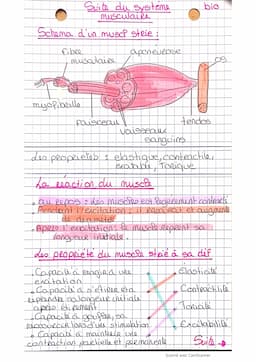 Suite du système bio
musculaire
Schéma d'un muscl strié :
fibre aponévrose
musculaire os
myofibrille
faisceaux tendos
vaisseaux
sanguins
Les propriétés : élastique, contractile,
excitable, Tonique
La réaction du muscle
. au repos : les muscles est légèrement contracté
. Pendant l'excitation : il raccourcit et augmente
de densité
. Après l'excitation : le muscle reprend sa
longueur initiale.
Les propriété du muscle strié à sa déf
. Capacité à réagir à une . Elasticité
excitation
. Capacité à s'étiré et à . Contractilité
reprendre sa longueur initiale
après étirement . Tonicité
. Capacité à gonfler, se
raccourcir lors d'une stimulation . Excitabilité
. Capacité à maintenir une
contraction partielle et permanente Suite
Scanné avec CamScanner